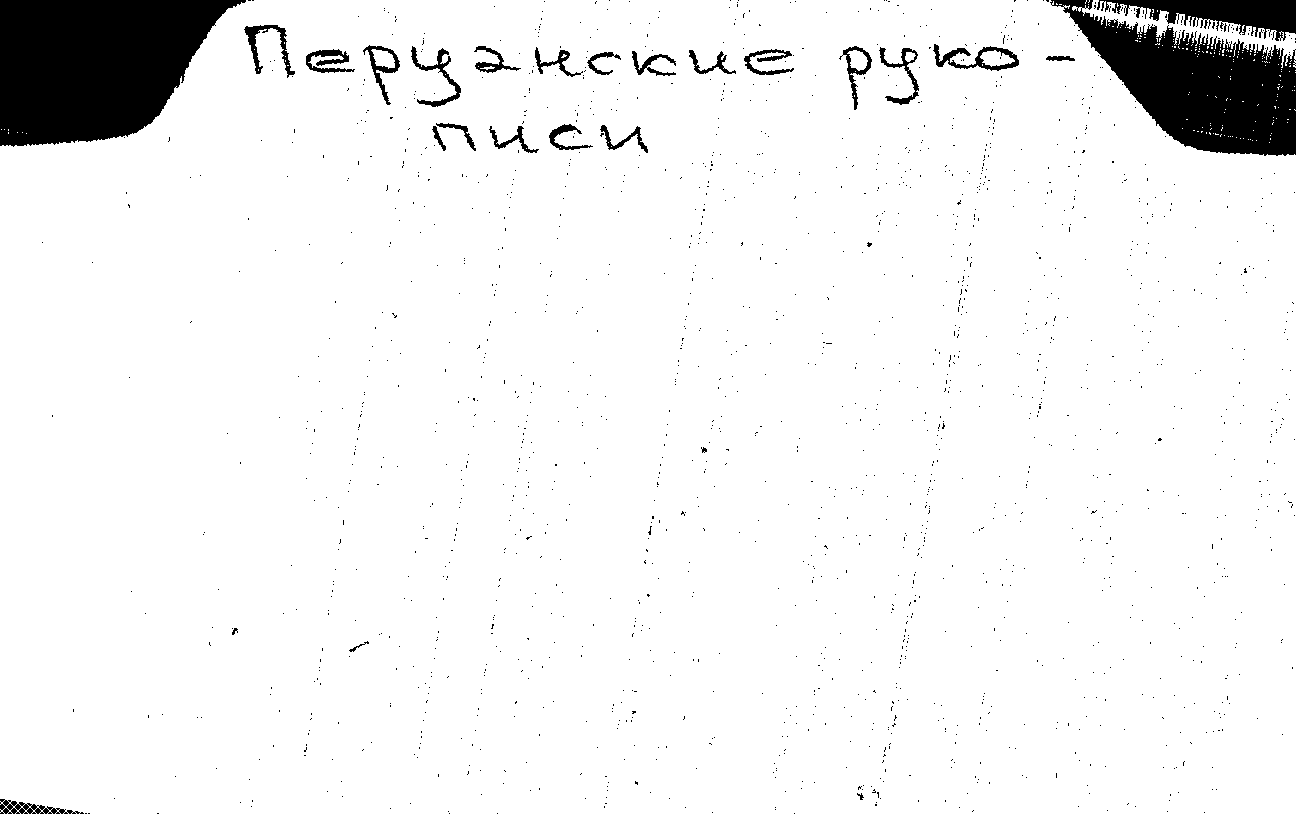 Перуанские руко-
писи